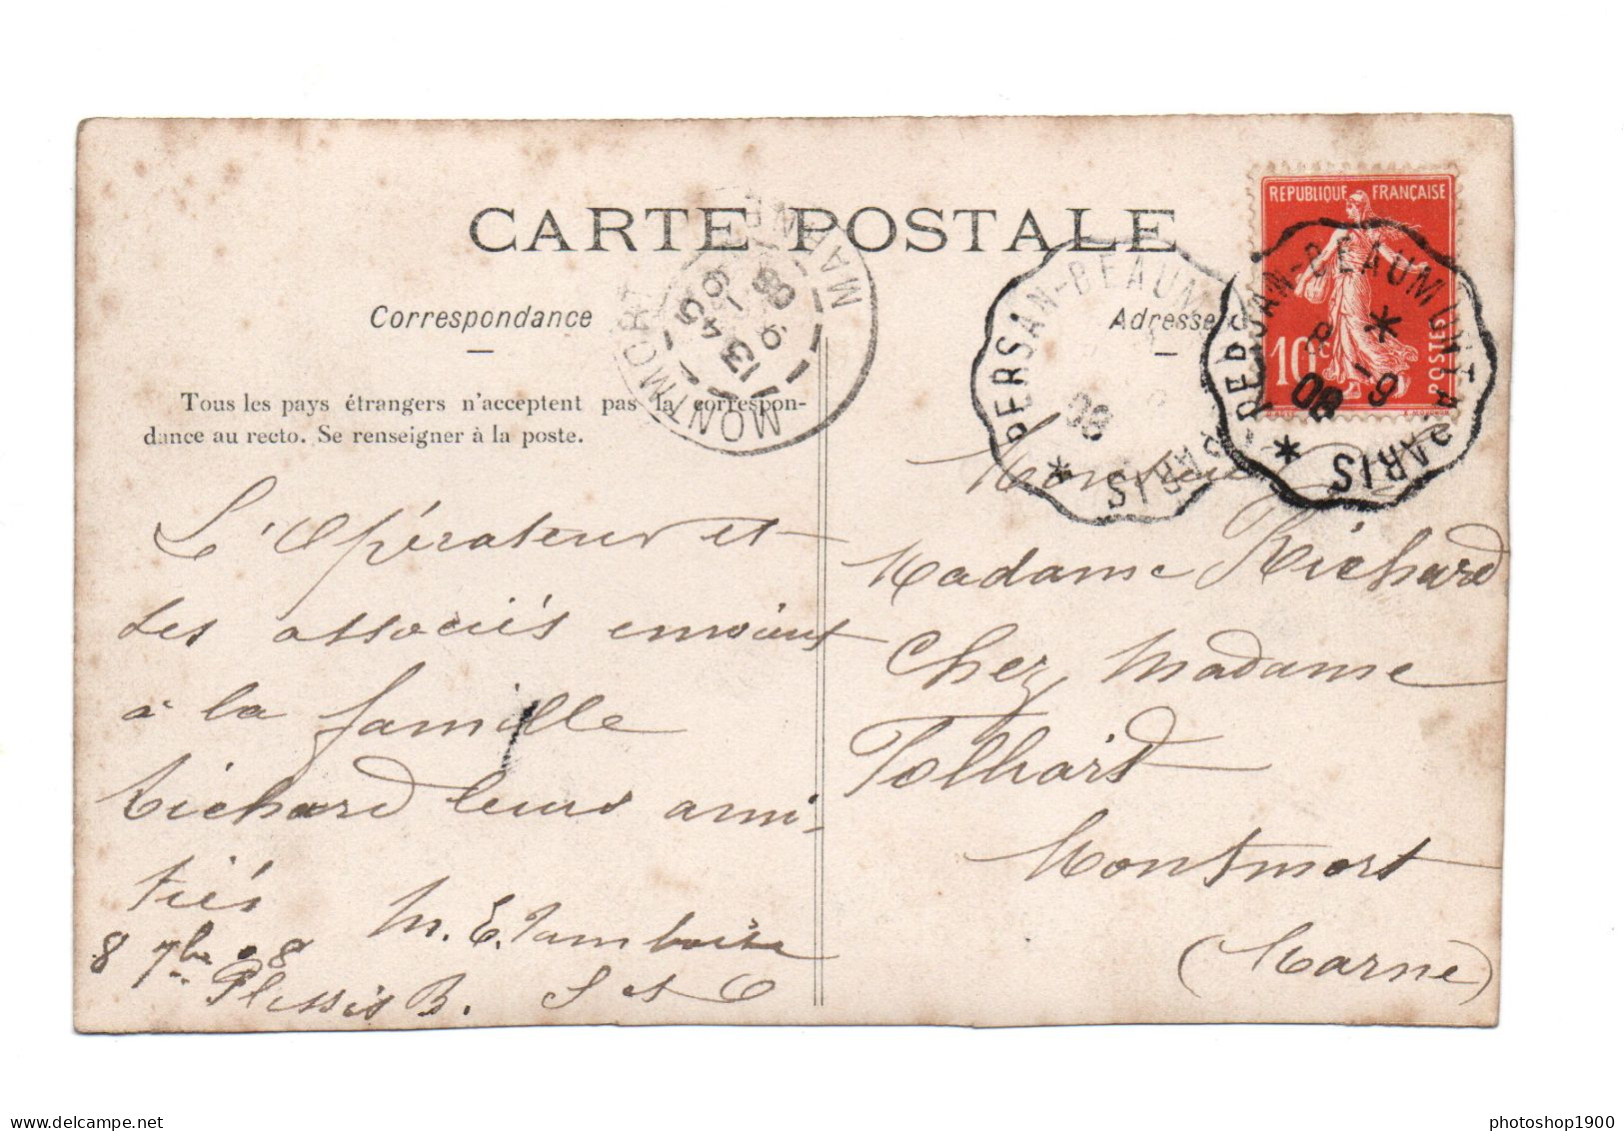 CARTE POSTALE
Correspondance
Adresse
Tous les pays étrangers n'acceptent pas la correspon-
dance au recto. Se renseigner à la poste.
REPUBLIQUE FRANÇAISE
10 c
POSTES
PERSAN-BEAUMONT A PARIS
8 - 9
08
PERSAN-BEAUM PARIS
08
MONTMORT MARNE
13 45
9 - 9
08
L'Opérateur et
ses associés envoient
à la famille
Richard leurs ami-
tiés
8 7bre 08
M. E.
Plessis B. S et O
Monsieur
Madame Richard
Chez Madame
Montmort
(Marne)
photoshop1900